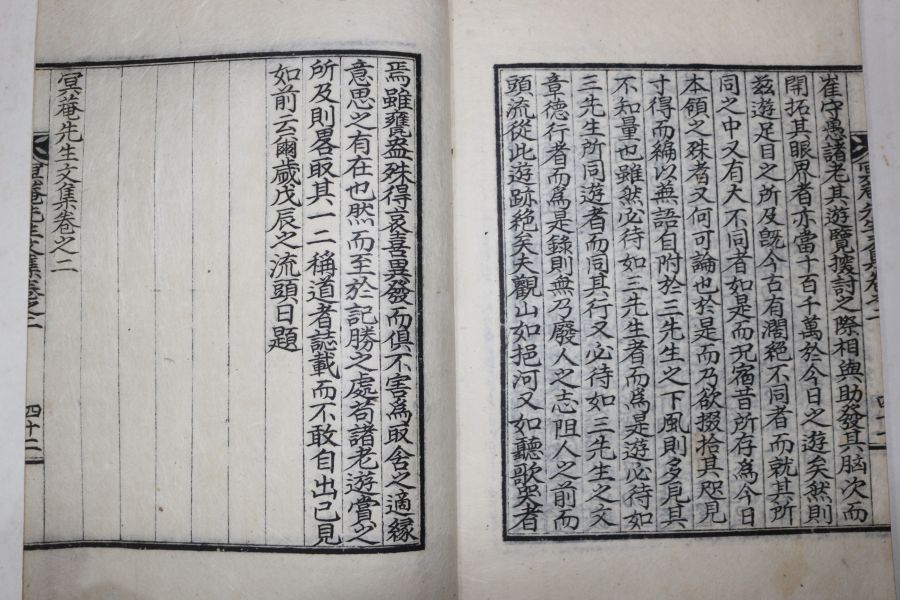 崔守愚諸老其遊覽援討之際相與助發其胸次而
開拓其眼界者亦當十百千萬於今日之遊矣然則
玆遊足目之所及旣今古有濶絶不同者而就其所
同之中又有大不同者如是而况宿昔所存爲今日
本領之殊者又何可論也於是而乃欲掇拾其咫見
寸得而編以蕪語自附於三先生之下風則多見其
不知量也雖然必待如三先生者而爲是遊必待如
三先生所同遊者而同其行又必待如三先生之文
章德行者而爲是錄則無乃廢人之志阻人之前而
頭流從此遊跡絶矣夫觀山如挹河又如聽歌哭者
焉雖甕盎殊得哀喜異發而俱不害爲取舍之適緣
意思之有在也然而至於記勝之處苟諸老遊賞之
所及則畧取其一二稱道者誌載而不敢自出己見
如前云爾歲戊辰之流頭日題
冥菴先生文集卷之二
四十二